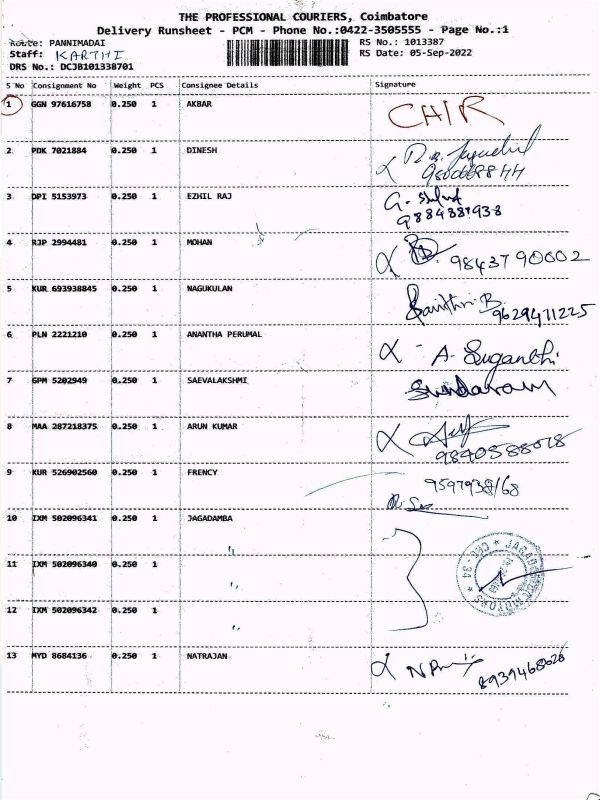 THE PROFESSIONAL COURIERS, Coimbatore
Delivery Runsheet - PCM - Phone No.:0422-3505555 - Page No.:1
Route: PANNIMADAI
RS No.: 1013387
Staff: KARTHI
RS Date: 05-Sep-2022
DRS No.: DCJB101338701
S No Consignment No Weight PCS Consignee Details Signature
1 GGN 97616758 0.250 1 AKBAR CHIR
2 PDK 7021884 0.250 1 DINESH
3 DPI 5153973 0.250 1 EZHIL RAJ
9884881938
4 RJP 2994481 0.250 1 MOHAN
9843790002
5 KUR 693938845 0.250 1 NAGUKULAN
9629471225
6 PLN 2221210 0.250 1 ANANTHA PERUMAL A. Suganthi
7 GPM 5202949 0.250 1 SAEVALAKSHMI Sundaram
8 MAA 287218375 0.250 1 ARUN KUMAR
9840588078
9 KUR 526902560 0.250 1 FRENCY
9597938168
10 IXM 502096341 0.250 1 JAGADAMBA
11 IXM 502096340 0.250 1 "
12 IXM 502096342 0.250 1 "
MOTORS * CBE - 34 *
13 MYD 8684136 0.250 1 NATRAJAN
8939468628